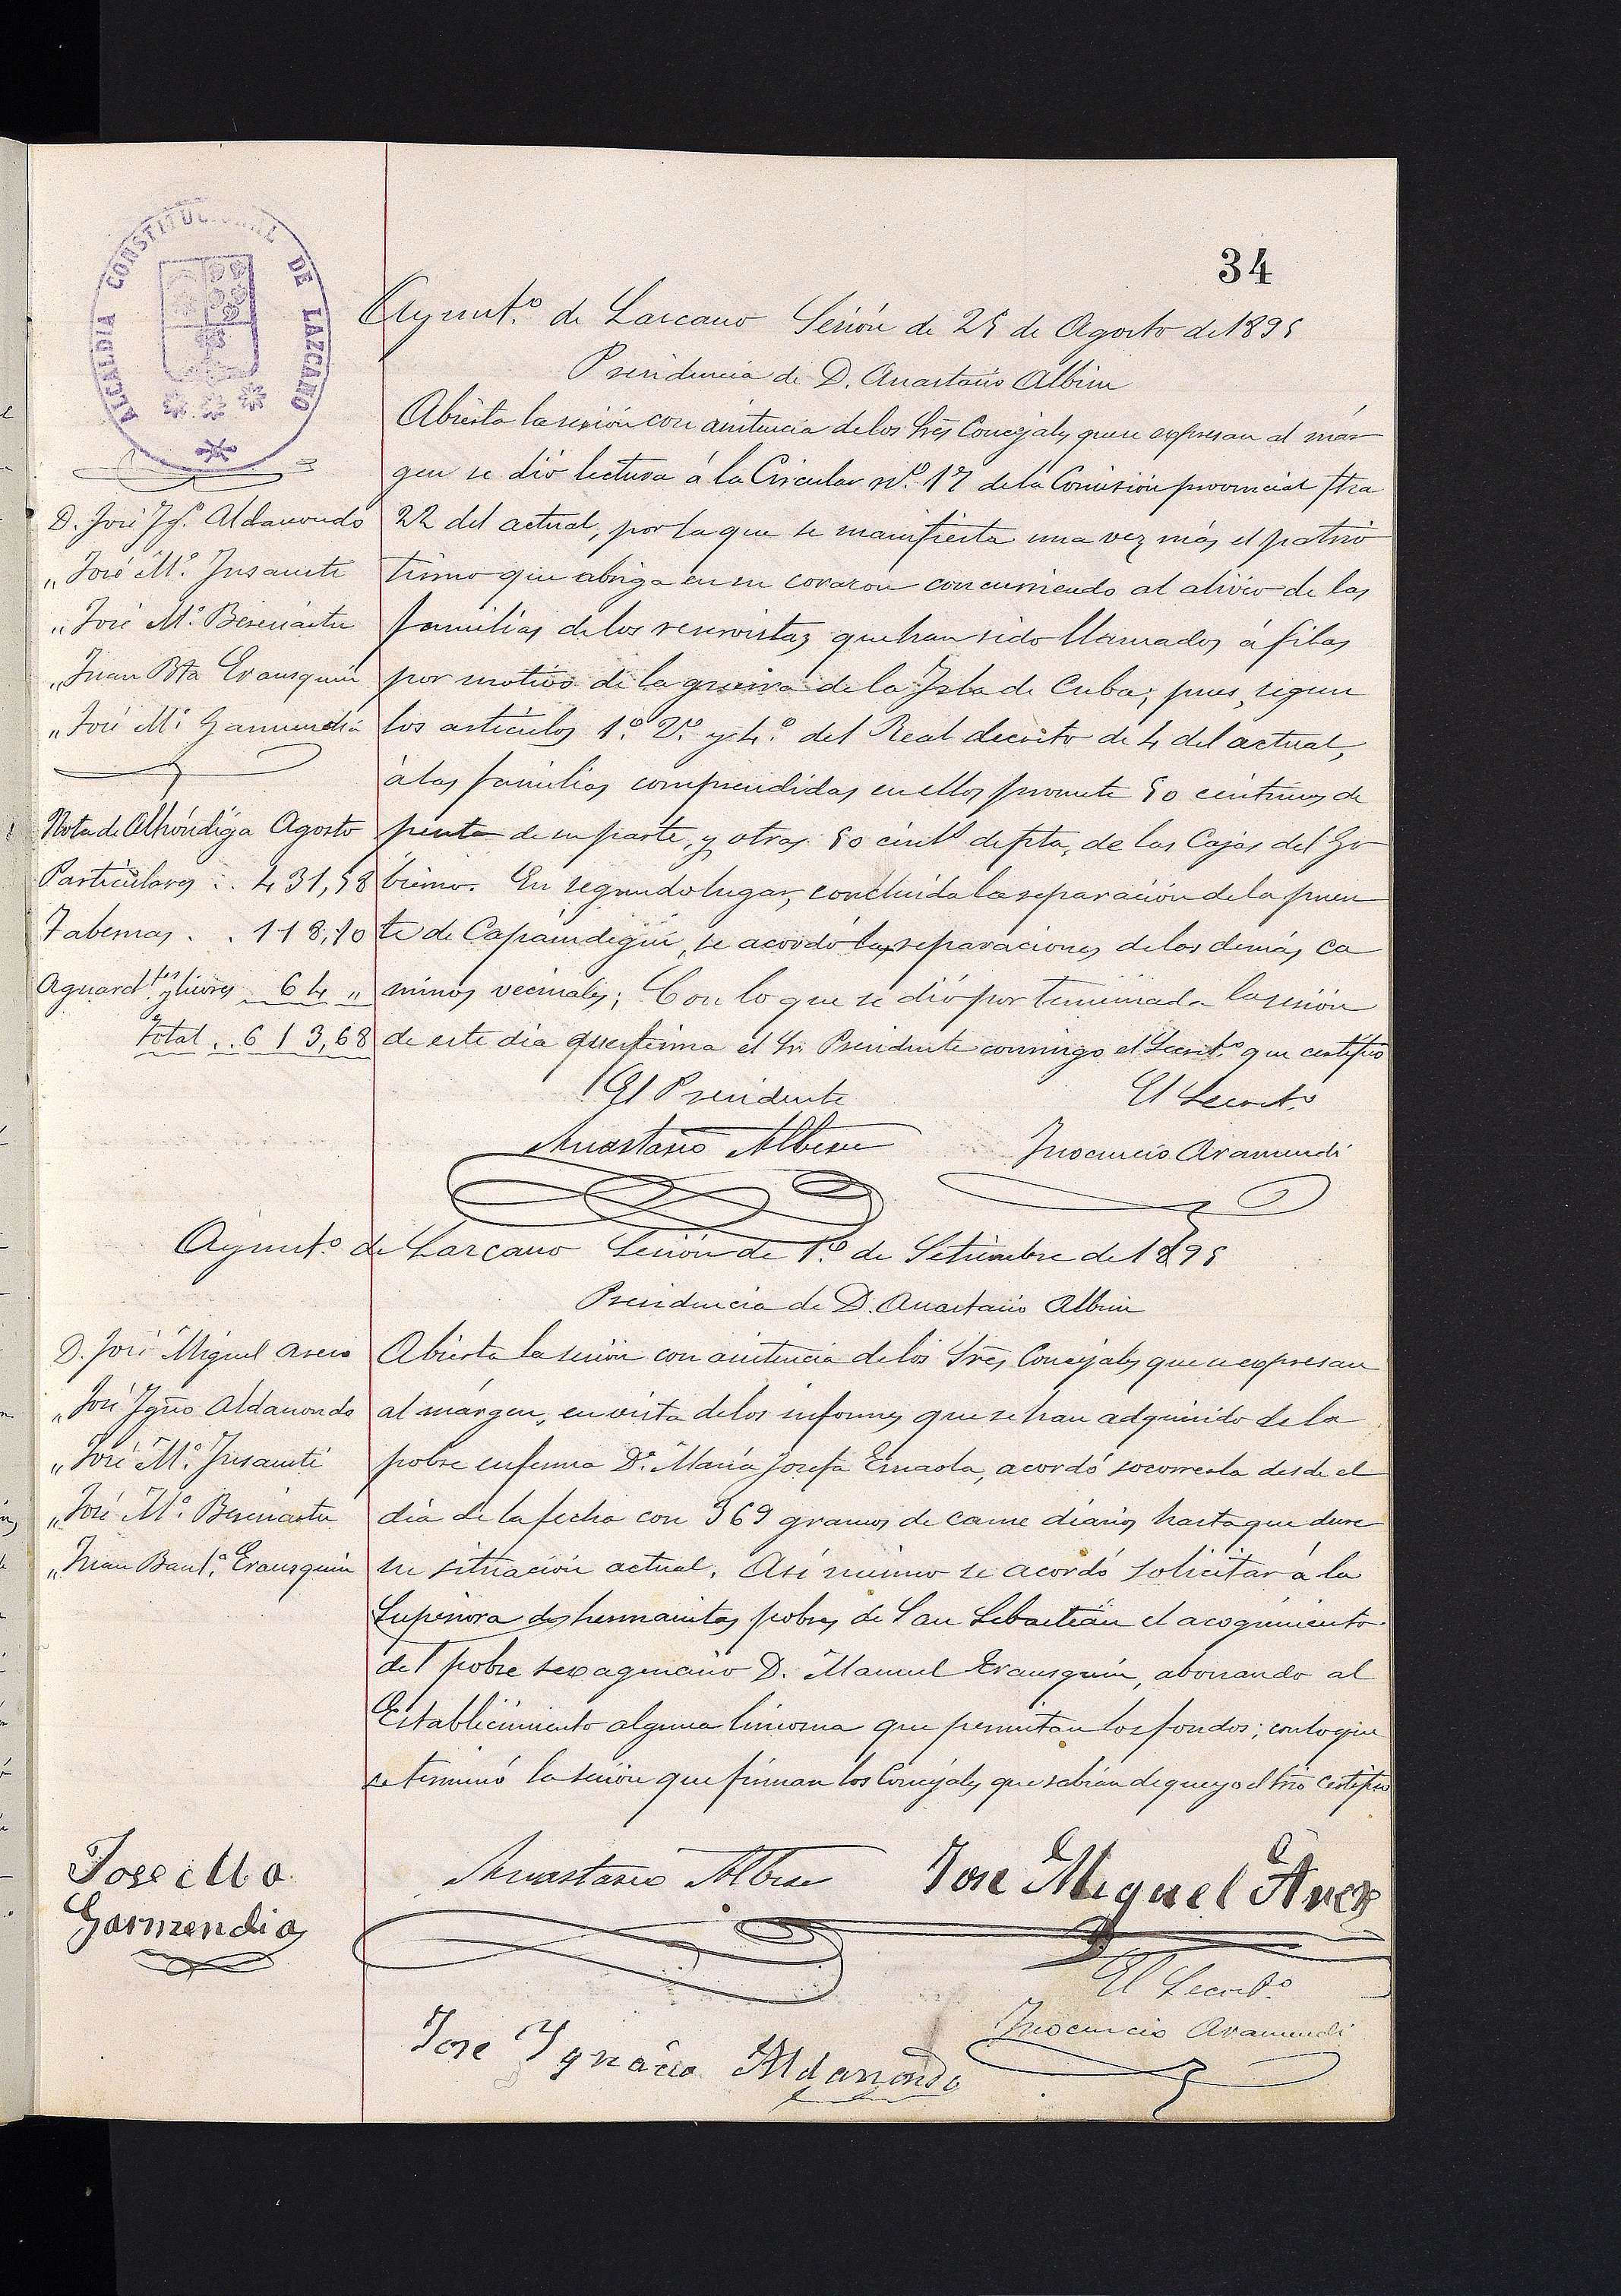 34
ALCALDIA CONSTITUCIONAL DE LAZCANO
Ayunt.º de Lazcano Sesión de 25 de Agosto de 1895
Presidencia de D. Anastasio Albisu
D. José Ig.º Aldanondo
„ José M.ª Insausti
„ José M.ª Berenastu
„ Juan Bta Erausquin
„ José M.ª Garmendia
Nota de Alhóndiga Agosto
Particulares . . 431,58
Tabernas . . 118,10
Aguard.tes y licores 64 „
Total . . 613,68
Abierta la sesión con asistencia de los Sres Concejales que se expresan al már
gen se dió lectura á la Circular nº. 17 de la Comisión provincial
22 del actual, por la que se manifiesta una vez más el patrio
tismo que abriga en su corazon concurriendo al alivio de las
familias de los reservistas que han sido llamados á filas
por motivo de la guerra de la Isla de Cuba; pues, segun
los artículos 1.º 2.º y 4.º del Real decreto de 4 del actual,
á las familias comprendidas en ellos promete 50 céntimos de
peseta de su parte, y otros 50 cént.s de pta, de las Cajas del Go
bierno. En segundo lugar, concluida la reparación de la puen
te de Capaindegui, se acordó las reparaciones de los demás ca
minos vecinales; Con lo que se dió por terminada la sesión
de este día que firma el Sr. Presidente conmigo el Secret.º que certifico
El Presidente
El Secret.º
Anastasio Albisu
Inocencio Aramendi
Ayunt.º de Lazcano Sesión de 1.º de Setiembre de 1895
Presidencia de D. Anastasio Albisu
D. José Miguel
„ José Igño Aldanondo
„ José M.ª Insausti
„ José M.ª Berenastu
„ Juan Baut.ª Erausquin
Abierta la sesión con asistencia de los Sres Concejales que se expresan
al márgen, en vista de los informes que se han adquirido de la
pobre enferma D.ª María Josefa Ernaola, acordó socorrerla desde el
día de la fecha con 369 gramos de carne diarios hasta que dure
su situación actual. Así mismo se acordó solicitar á la
Superiora de hermanitas pobres de San Sebastián el acogimiento
del pobre sexagenario D. Manuel Erausquin, abonando al
Establecimiento alguna limosna que permitan los fondos; con lo que
se terminó la sesión que firman los Concejales que sabían de que yo el Srio certifico
Jose Ma
Garmendia
Anastasio Albisu
Jose Miguel
El Secret.º
Inocencio Aramendi
Jose Ygnacio Aldanondo